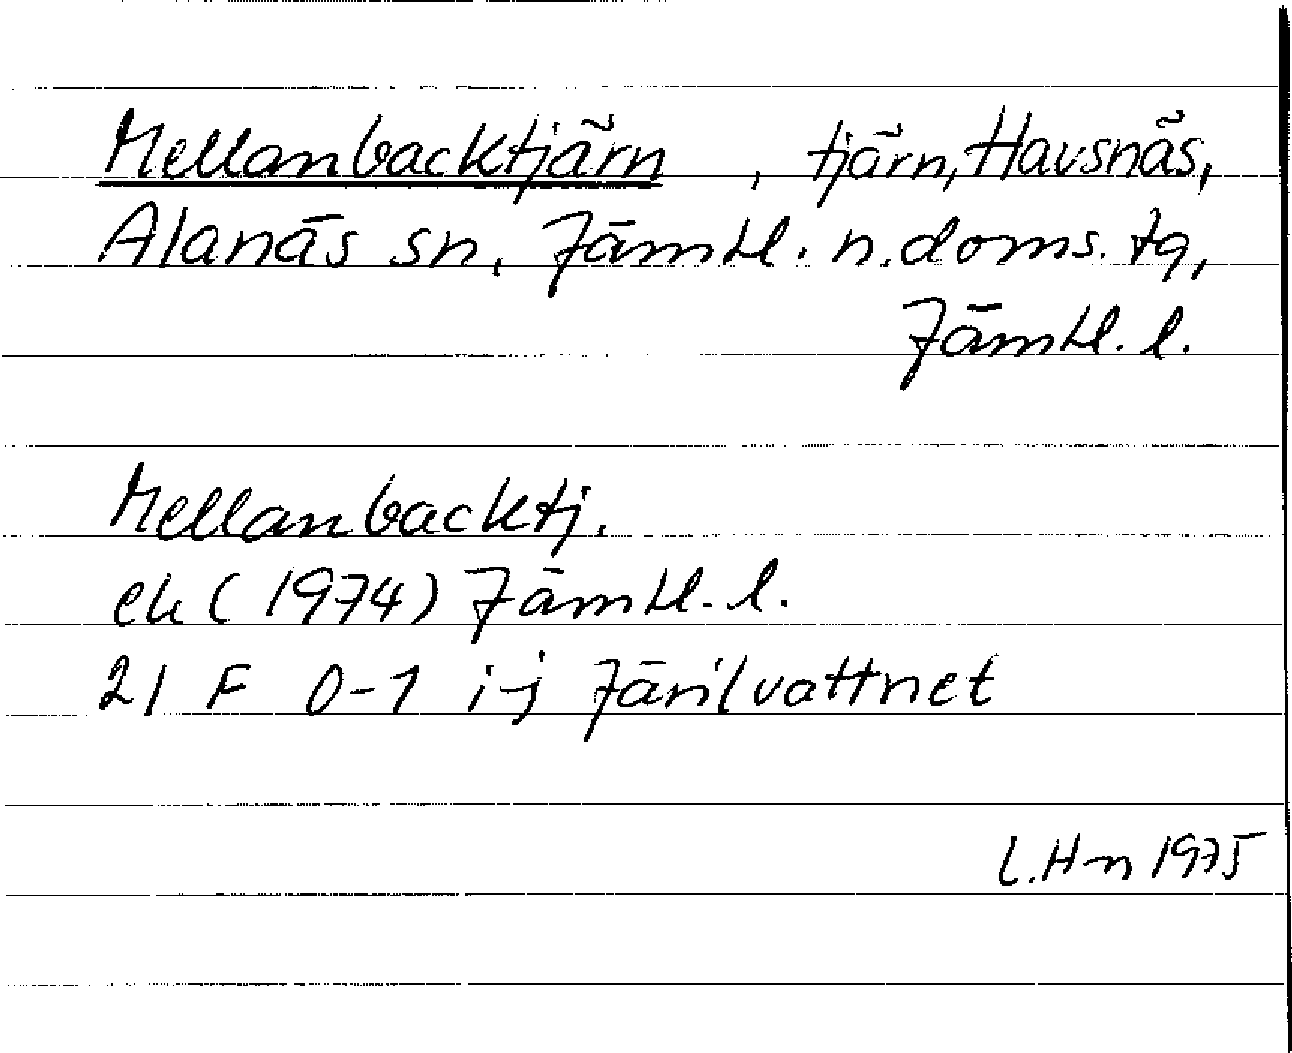 Mellanbacktjärn , tjärn, Havsnäs,
Alanäs sn, Jämtl. n. doms. tg,
Jämtl. l.
Mellanbacktj.
ek (1974) Jämtl. l.
21 F 0-1 i-j Järilvattnet
L. H-n 1975